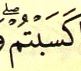 اكَسَبْتُمْۖ و